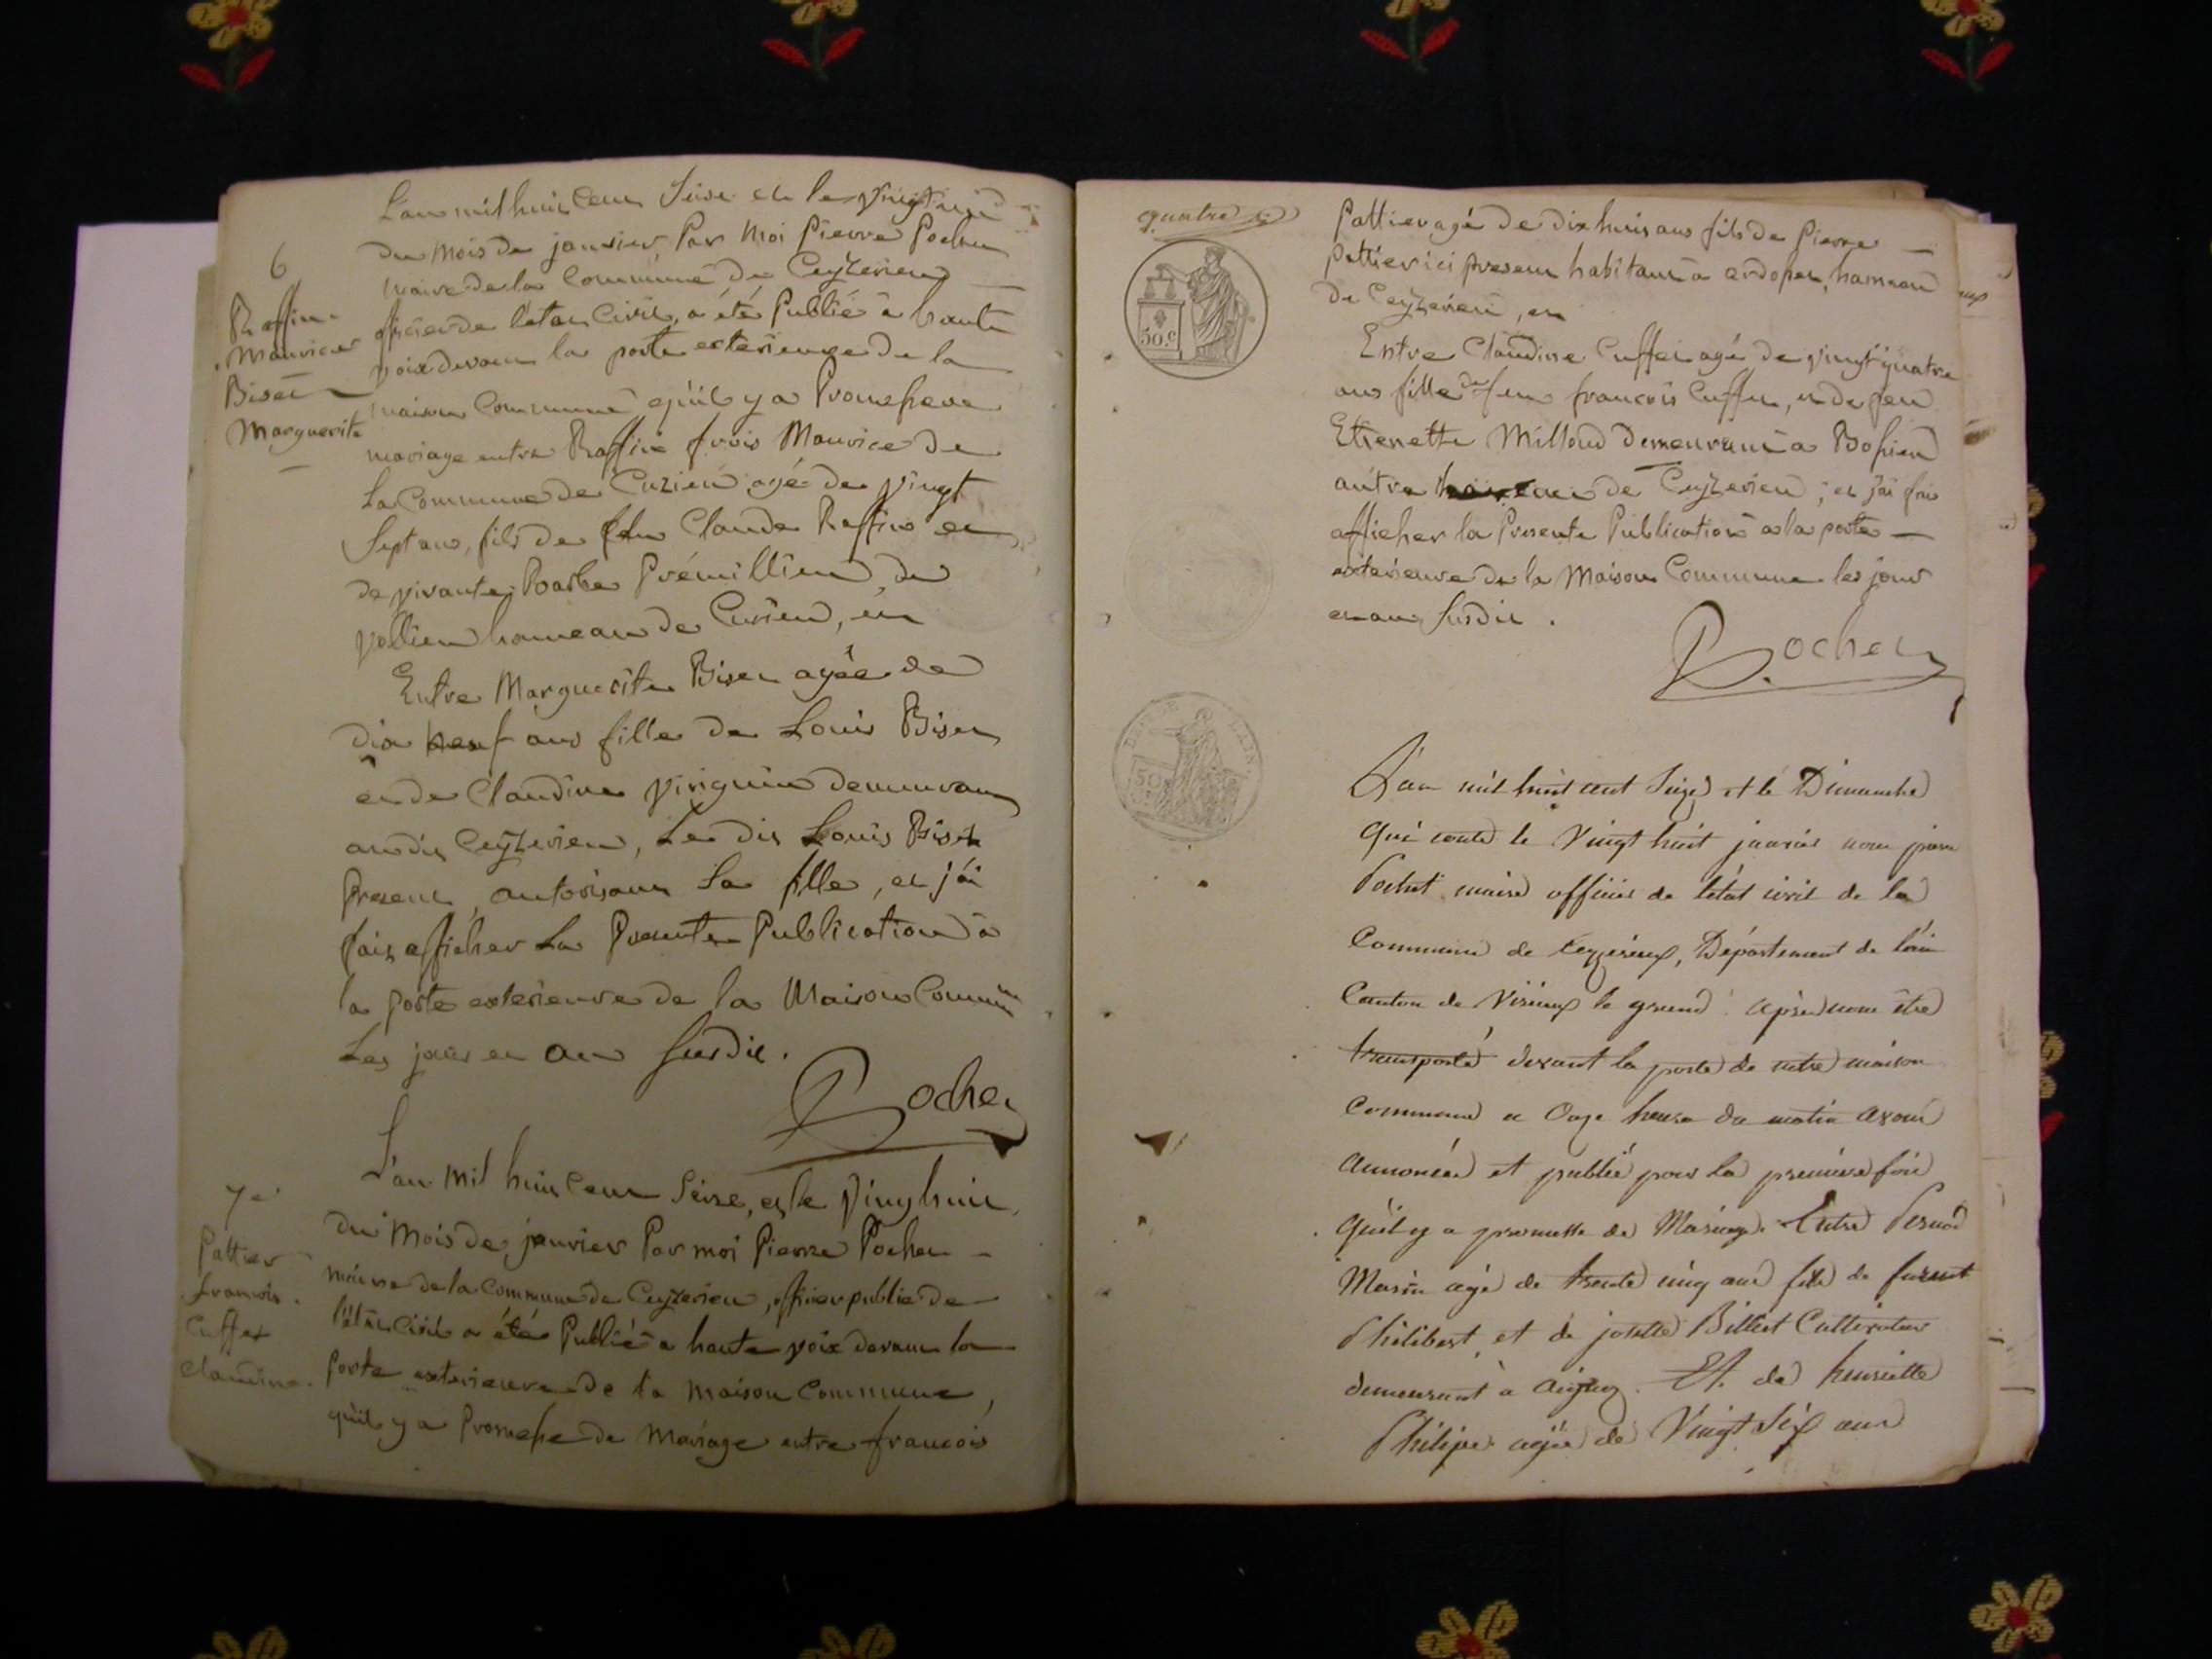 L'an mil huis cens Seise et le vingt
du mois de janvier, Par Moi Pierre Pochet
maire de la Commune de Ceyzerieu
officier de l'etat Civil, a été Publié à haute
voix devant la porte exterieure de la
maison Commune qu'il y a Promesse de
mariage entre Raffin Maurice de
La Commune de Cuzieu agé de vingt
Sept ans, fils de feu Claude Raffin et
de vivante Barbe Prémillieu de
vollien hameau de Cusieu, en
Entre Marguerite Biset agée de
dix neuf ans fille de Louis Biset
et de Claudine demeurant
au dit Ceyzerieu, Le dit Louis Biset
Present, autorisant Sa fille, et j'ai
fait afficher La Presente Publication à
la porte exterieure de la Maison Commune
Les jour et an Susdit.
Pochet
6
Raffin
Maurice
Biset
Marguerite
L'an Mil huis Cens Seise, et le Vingt huit
du Mois de janvier Par moi Pierre Pochet
maire de la Commune de Ceyzerieu, officier public de
l'etat Civil a été Publié a haute voix devant la
porte exterieure de la maison Commune,
qu'il y a Promesse de Mariage entre francois
7e
Pattier
francois.
Cuffet
Claudine.
quatre
50.c
Pattier agé de dix huis ans fils de Pierre
Pattier ici present habitant a ardosset, hameau
de Ceyzerieu, en
Entre Claudine Cuffet agé de vingt quatre
ans fille de feu francois Cuffet, et de feu
Etienette Millaud Demeurant a Bossieu
autre hameau de Ceyzerieu; et j'ai fais
afficher la Presente Publication a la porte
exterieure de la Maison Commune les jour
et an Susdit.
Pochet
50
L'an mil huit cent Seize et le Dimanche
qui conte le Vingt huit janvier nous pierre
Pochet maire officier de l'état civil de la
Commune de Ceyzerieux, Département de l'ain
Canton de Virieux le grand après nous être
transporté devant la porte de notre maison
Commune a Onze heure du matin avons
Annoncée et publié pour la première fois
qu'il y a promesse de Mariage. Entre Pernod
Marin agé de trente cinq ans fils de furent
Philibert, et de josette Billiet Cultivateur
demeurant à Aignoz. Et de henriette
Philipe agée de Vingt Six ans